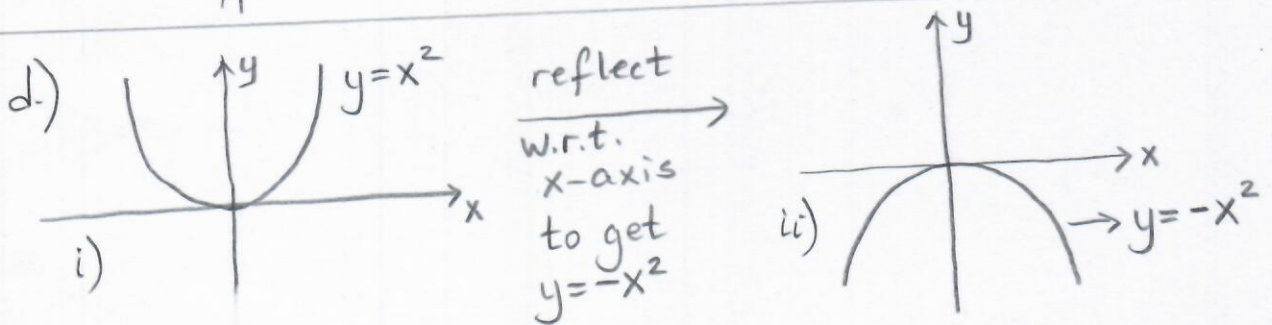 d.)
y
y=x²
x
i)
reflect
w.r.t.
x-axis
to get
y=-x²
y
x
ii)
→ y=-x²